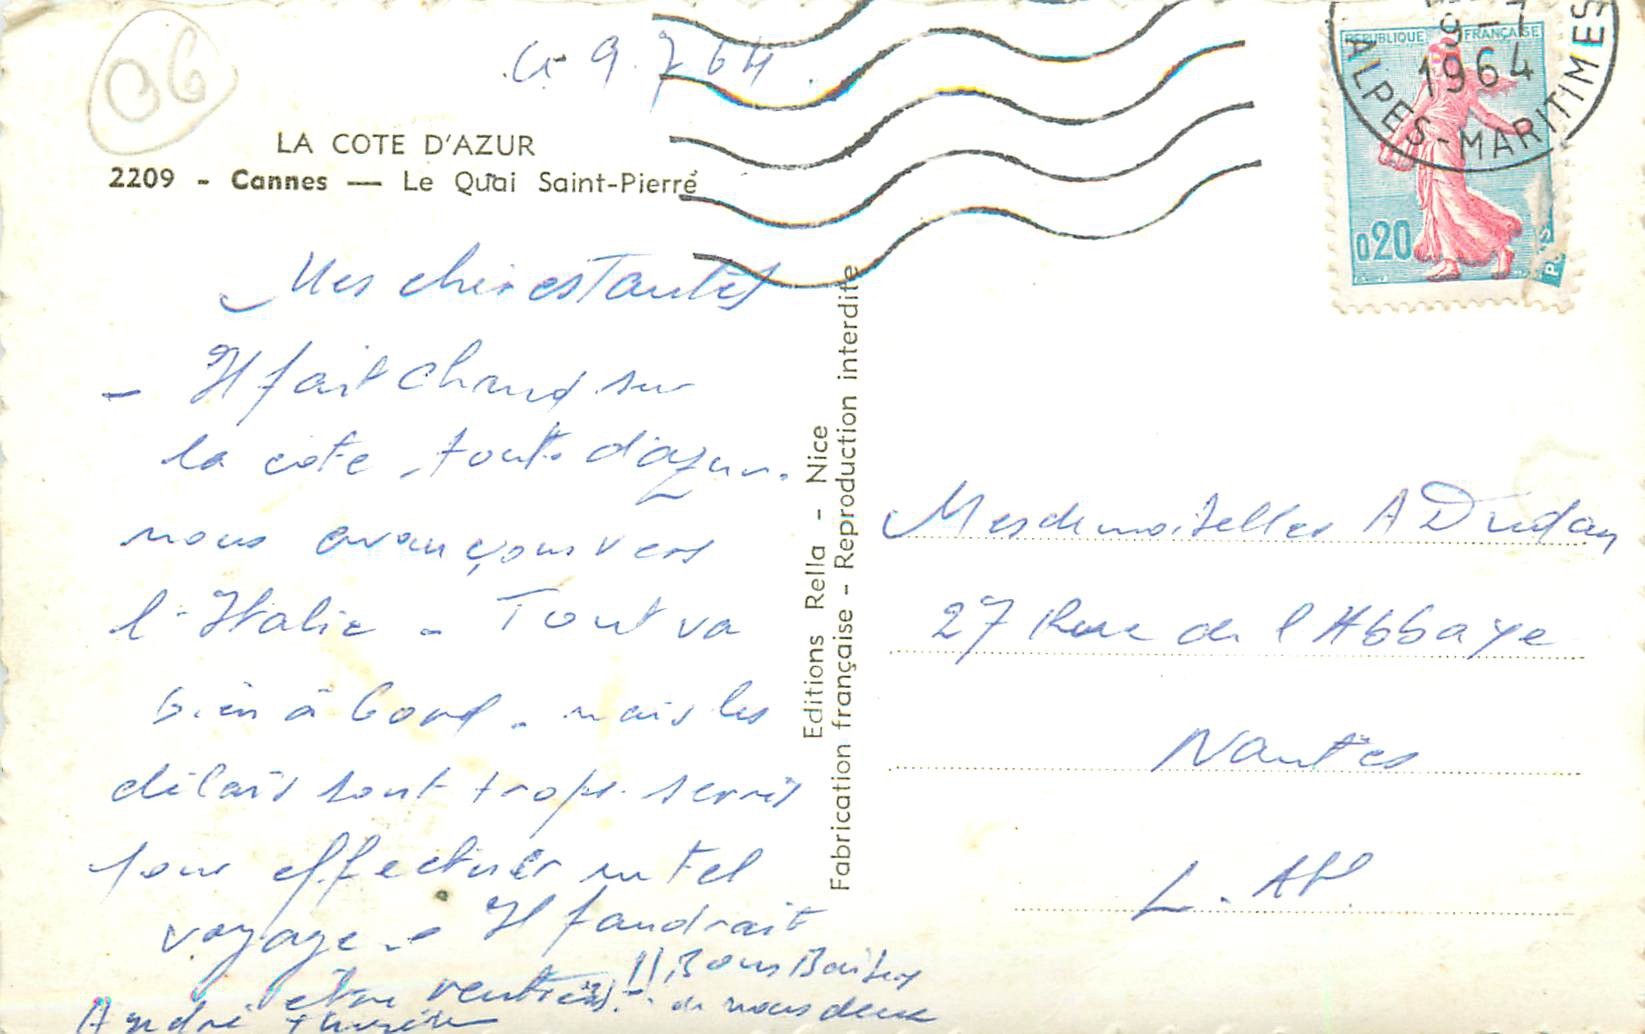 06
Le 9.7 64.
LA COTE D'AZUR
2209 - Cannes — Le Quai Saint-Pierre
Mes chères Tantes
- Il fait chaud sur
la côte toute d'azur.
nous avançons vers
l'Italie - Tout va
bien à bord - mais les
délais sont trop serrés
pour effectuer un tel
voyage - Il faudrait
être rentiers!! Bons Baisers
de nous deux
André
Editions Rella - Nice
Fabrication française - Reproduction interdite
1964
ALPES-MARITIMES
REPUBLIQUE FRANÇAISE
0,20
Mesdemoiselles A
27 Rue de l'Abbaye
Nantes
L. Atl.